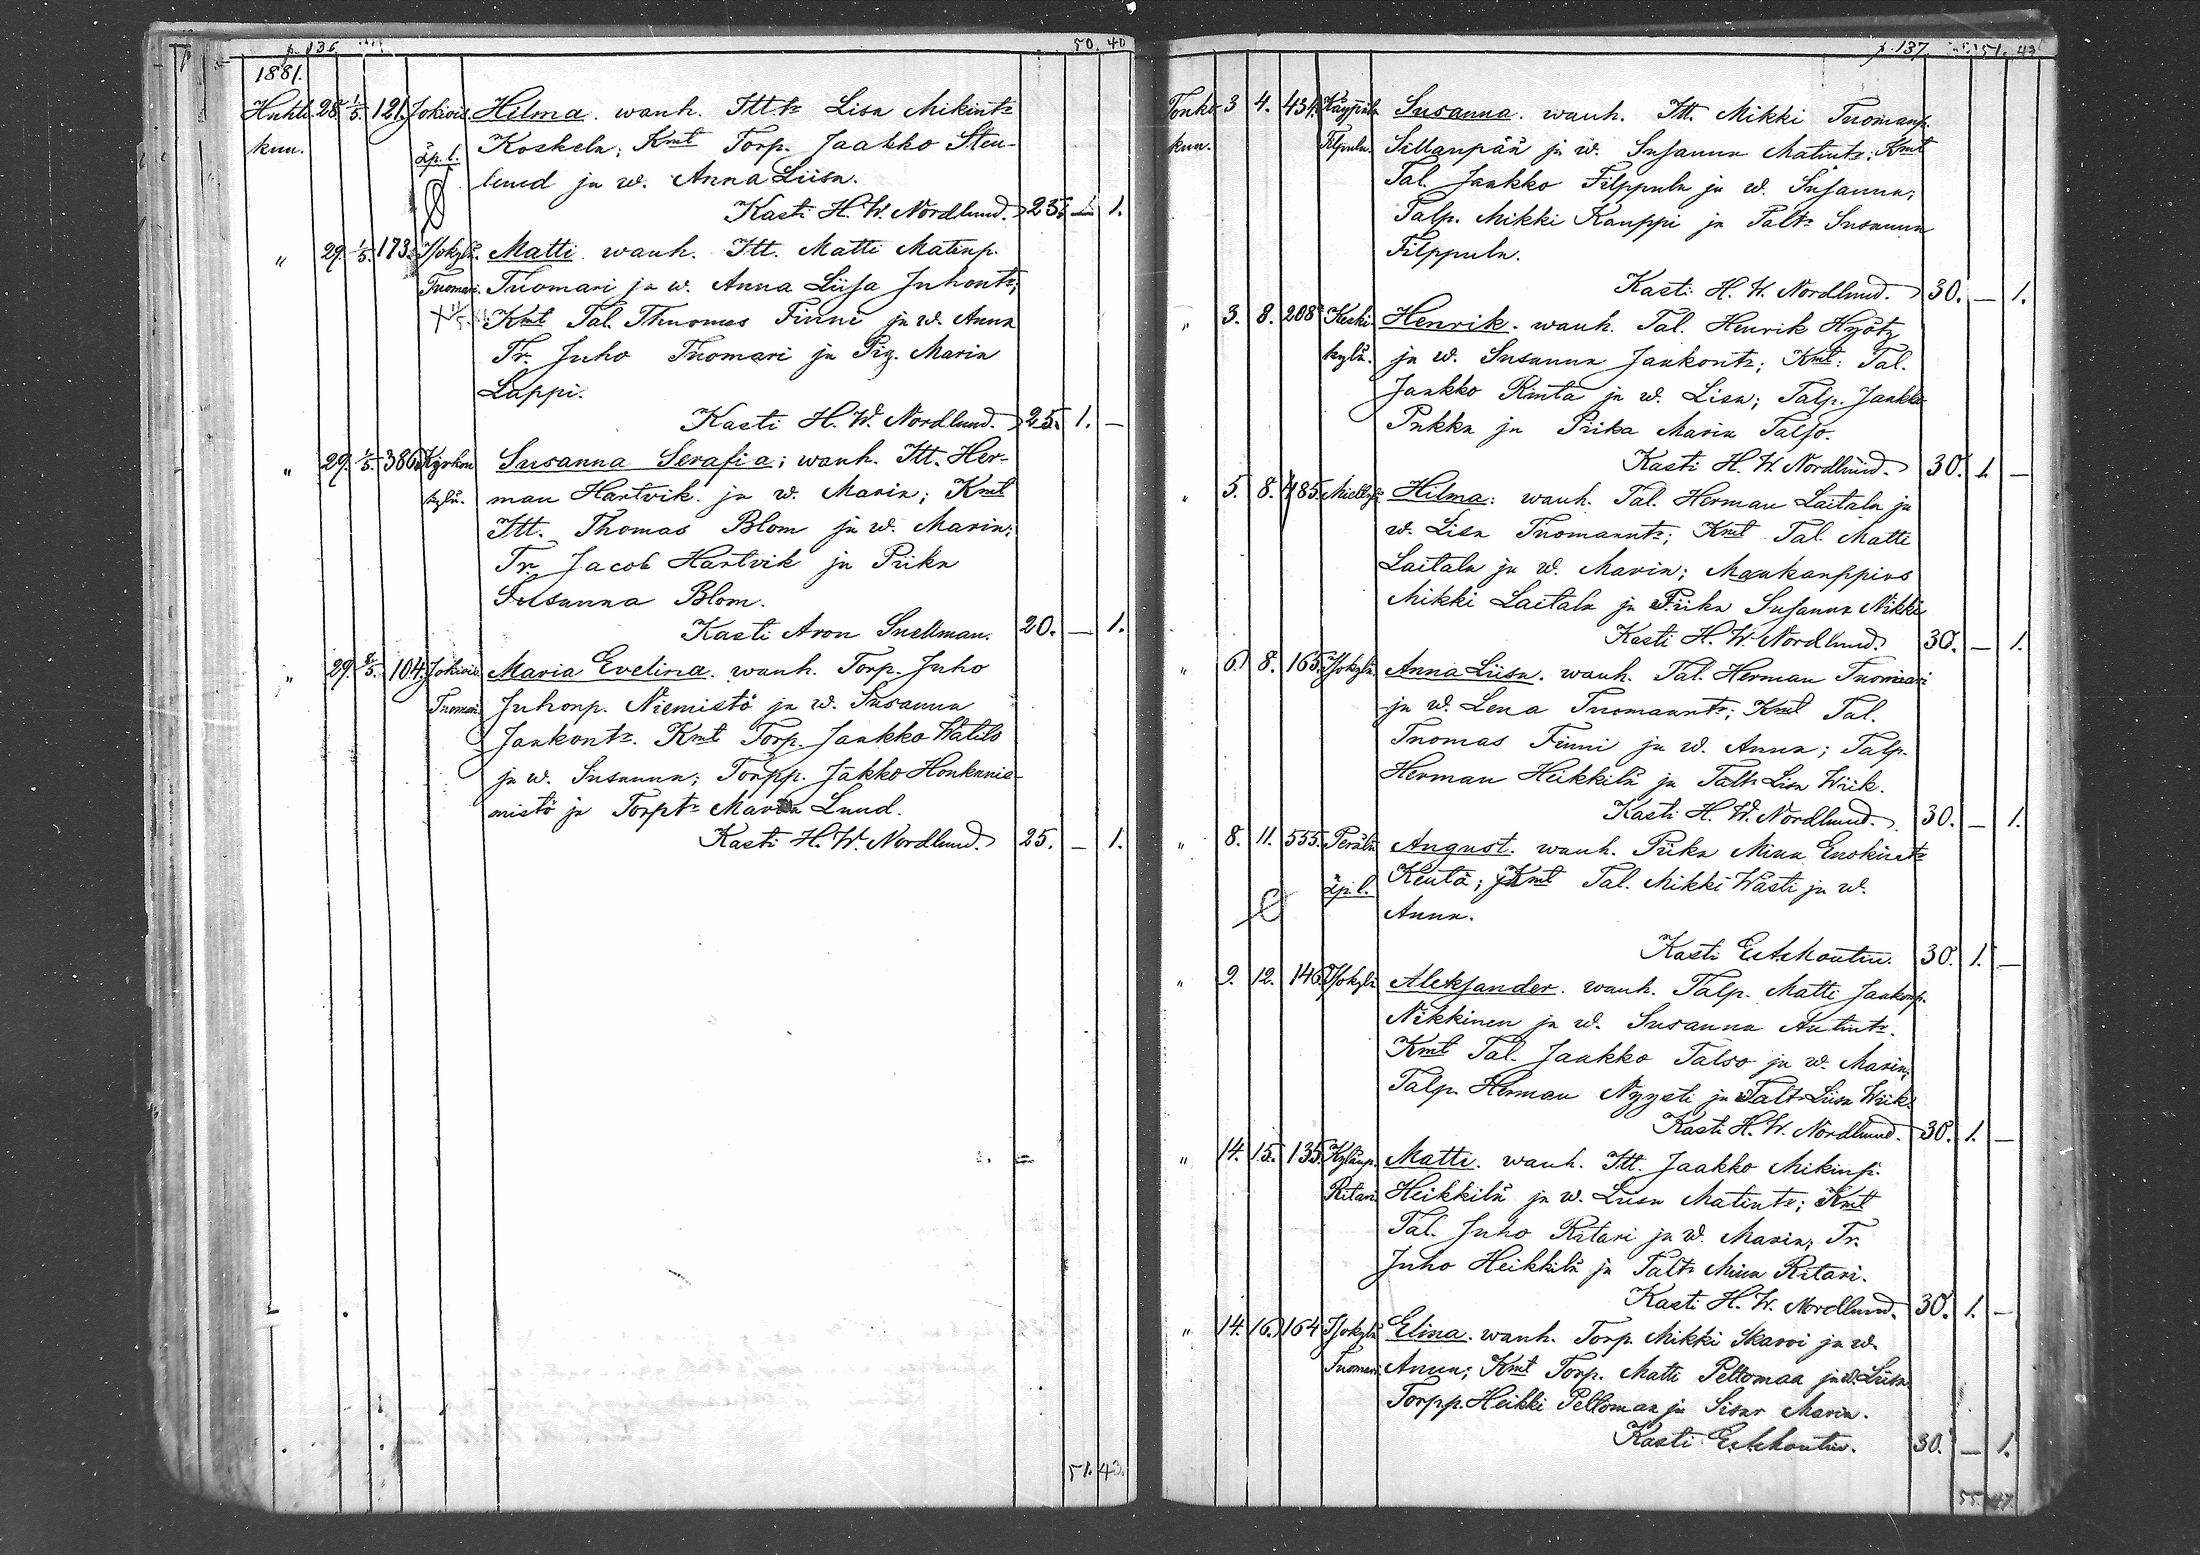 p. 136. 50. 40
1881.
Huhti- 28. 1/5. 121. Jokivie. Hilma. wanh. Itt:tr Lisa Mikintr
kuu. äp. l. Koskela; Kmt Torp. Jaakko Sten-
lund ja w. Anna Liisa.
Kasti H. W. Nordlund. 23. — 1.
" 29. 1/5. 173. Isokylä. Matti. wanh. Itt. Matti Matinp.
Tuomari. Tuomari ja w. Anna Liisa Juhontr;
Kmt Tal. Thuomas Finni ja w. Anna
Tr. Juho Tuomari ja Pig. Maria
Lappi.
Kasti H. W. Nordlund. 25. 1. —
" 29. 1/5. 386. Kyrkon Susanna Serafia; wanh. Itt. Her-
kylä. man Hartvik ja w. Maria; Kmt
Itt. Thomas Blom ja w. Maria;
Tr. Jacob Hartvik ja Piika
Susanna Blom.
Kasti Aron Snellman. 20. — 1.
" 29. 8/5. 104. Jokivie. Maria Evelina. wanh. Torp. Juho
Tuomari. Juhonp. Niemistö ja w. Susanna
Jaakontr. Kmt Torp. Jaakko Watilo
ja w. Susanna; Torpp. Jakko Honkanie-
mistö ja Torptr Maria Lund.
Kasti H. W. Nordlund. 25. — 1.
51. 43.
p. 137. 51. 43
Touko- 3 4. 434. Kauppila Susanna. wanh. Itt. Mikki Tuomanp.
kuu. Filpula. Sillanpää ja w. Susanna Matintr; Kmt
Tal. Jaakko Filppula ja w. Susanna;
Talp. Mikki Kauppi ja Taltr Susanna
Filppula.
Kasti H. W. Nordlund. 30. — 1.
" 3. 8. 208. Keski- Henrik. wanh. Tal. Henrik Hyötz
kylä. ja w. Susanna Jaakontr; Kmt: Tal.
Jaakko Rinta ja w. Lisa; Talp. Jaakko
Pukka ja Piika Maria Talso.
Kasti H. W. Nordlund. 30. 1. —
" 5. 8. 485. Mielty. Hilma: wanh. Tal. Herman Laitala ja
w. Lisa Tuomanntr; Kmt Tal. Matti
Laitala ja w. Maria; Maakauppias
Mikki Laitala ja Piika Susanna Nikki
Kasti H. W. Nordlund. 30. — 1.
" 6. 8. 165. Isokylä. Anna Liisa. wanh. Tal. Herman Tuomari
ja w. Lena Tuomanntr; Kmt Tal.
Tuomas Finni ja w. Anna; Talp.
Herman Heikkilä ja Taltr Lisa Wiik.
Kasti H. W. Nordlund. 30. — 1.
" 8. 11. 555. Perälä August. wanh. Piika Mina Enokintr
äp. l. Kentä; Kmt Tal. Mikki Wästi ja w.
Anna.
Kasti 30. 1. —
" 9. 12. 146. Isokylä Aleksander. wanh. Talp. Matti Jaakonp.
Nikkinen ja w. Susanna Antintr.
Kmt Tal. Jaakko Talso ja w. Maria;
Talp. Herman Nyysti ja Taltr Liisa Wiik.
Kasti H. W. Nordlund. 30. 1. —
" 14. 15. 135. Kylänp. Matti. wanh. Itt. Jaakko Mikinp.
Ritari. Heikkilä ja w. Liisa Matintr; Kmt
Tal. Juho Ritari ja w. Maria; Tr.
Juho Heikkilä ja Taltr Mina Ritari.
Kasti H. W. Nordlund. 30. 1. —
" 14. 16. 164 Isokylä Elina. wanh. Torp. Mikki Skarvi ja w.
Tuomari. Anna; Kmt Torp. Matti Peltomaa ja w. Liisa
Torpp. Heikki Peltomaa ja Sisar Maria.
Kasti 30. — 1.
55. 47.